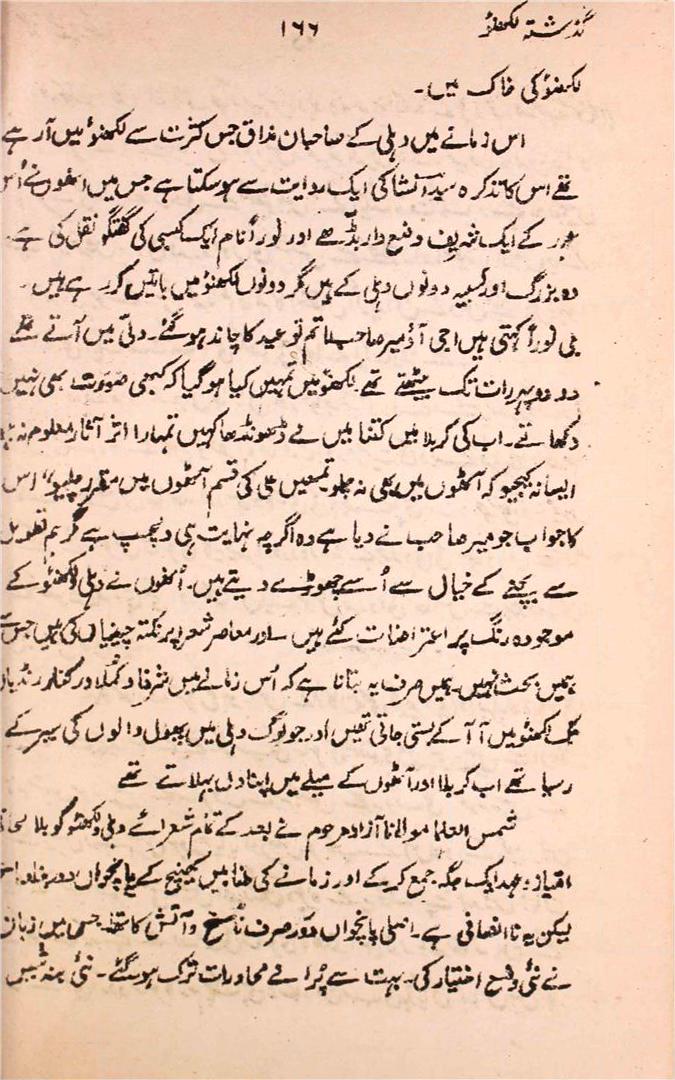 گذشتہ لکھنؤ
۱۶۶
لکھنؤ کی خاک ہیں۔
اس زمانے میں دہلی کے صاحبانِ مذاق جس کثرت سے لکھنؤ میں آ رہے
تھے اس کا تذکرہ سید انشا کی ایک روایت سے ہو سکتا ہے جس میں انھوں نے اُس
کے ایک شریف وضع دار بڈھے اور نورا نام ایک کسبی کی گفتگو نقل کی ہے۔
وہ بزرگ اور کسبیہ دونوں دہلی کے ہیں مگر دونوں لکھنؤ میں باتیں کر رہے ہیں۔
بی نورا کہتی ہیں اجی آؤ میر صاحب! تم تو عید کا چاند ہو گئے۔ دلّی میں آتے تھے
دو دو پہر رات تک بیٹھتے تھے لکھنؤ میں تمہیں کیا ہو گیا کہ کبھی صورت بھی نہیں
دکھاتے۔ اب کی کربلا میں کتنا میں نے ڈھونڈھا کہیں تمہارا اثر آثار معلوم نہ
ایسا نہ کیجیو کہ آٹھوں میں بھی نہ چلو۔ تمھیں علی کی قسم آٹھوں میں مقرر چلیو" اس
کا جواب جو میر صاحب نے دیا ہے وہ اگرچہ نہایت ہی دلچسپ ہے مگر ہم تطویل
سے بچنے کے خیال سے اُسے چھوڑے دیتے ہیں۔ اُنھوں نے دہلی و لکھنؤ کے
موجودہ رنگ پر اعتراضات کئے ہیں اور معاصر شعرا پر نکتہ چینیاں کی ہیں جس سے
ہمیں بحث نہیں۔ ہمیں صرف یہ بتانا ہے کہ اُس زمانے میں شرفا و کملا درکنار رنڈیاں
تک لکھنؤ میں آ آ کے بستی جاتی تھیں اور جو لوگ دہلی میں پھول والوں کی سیر کے
رسیا تھے اب کربلا اور آٹھوں کے میلے میں اپنا دل بہلاتے تھے
شمس العلما مولانا آزاد مرحوم نے بعد کے تمام شعرائے دہلی و لکھنؤ کو بلا لحاظ
امتیاز و عہد ایک جگہ جمع کر کے اور زمانے کی طنابیں کھینچ کے پانچواں دور
لیکن یہ ناانصافی ہے۔ اصلی پانچواں دَور صرف ناسخ و آتش کا تھا۔ جس میں زبان
نے نئی وضع اختیار کی۔ بہت سے پُرانے محاورات ترک ہو گئے۔ نئی بندشیں